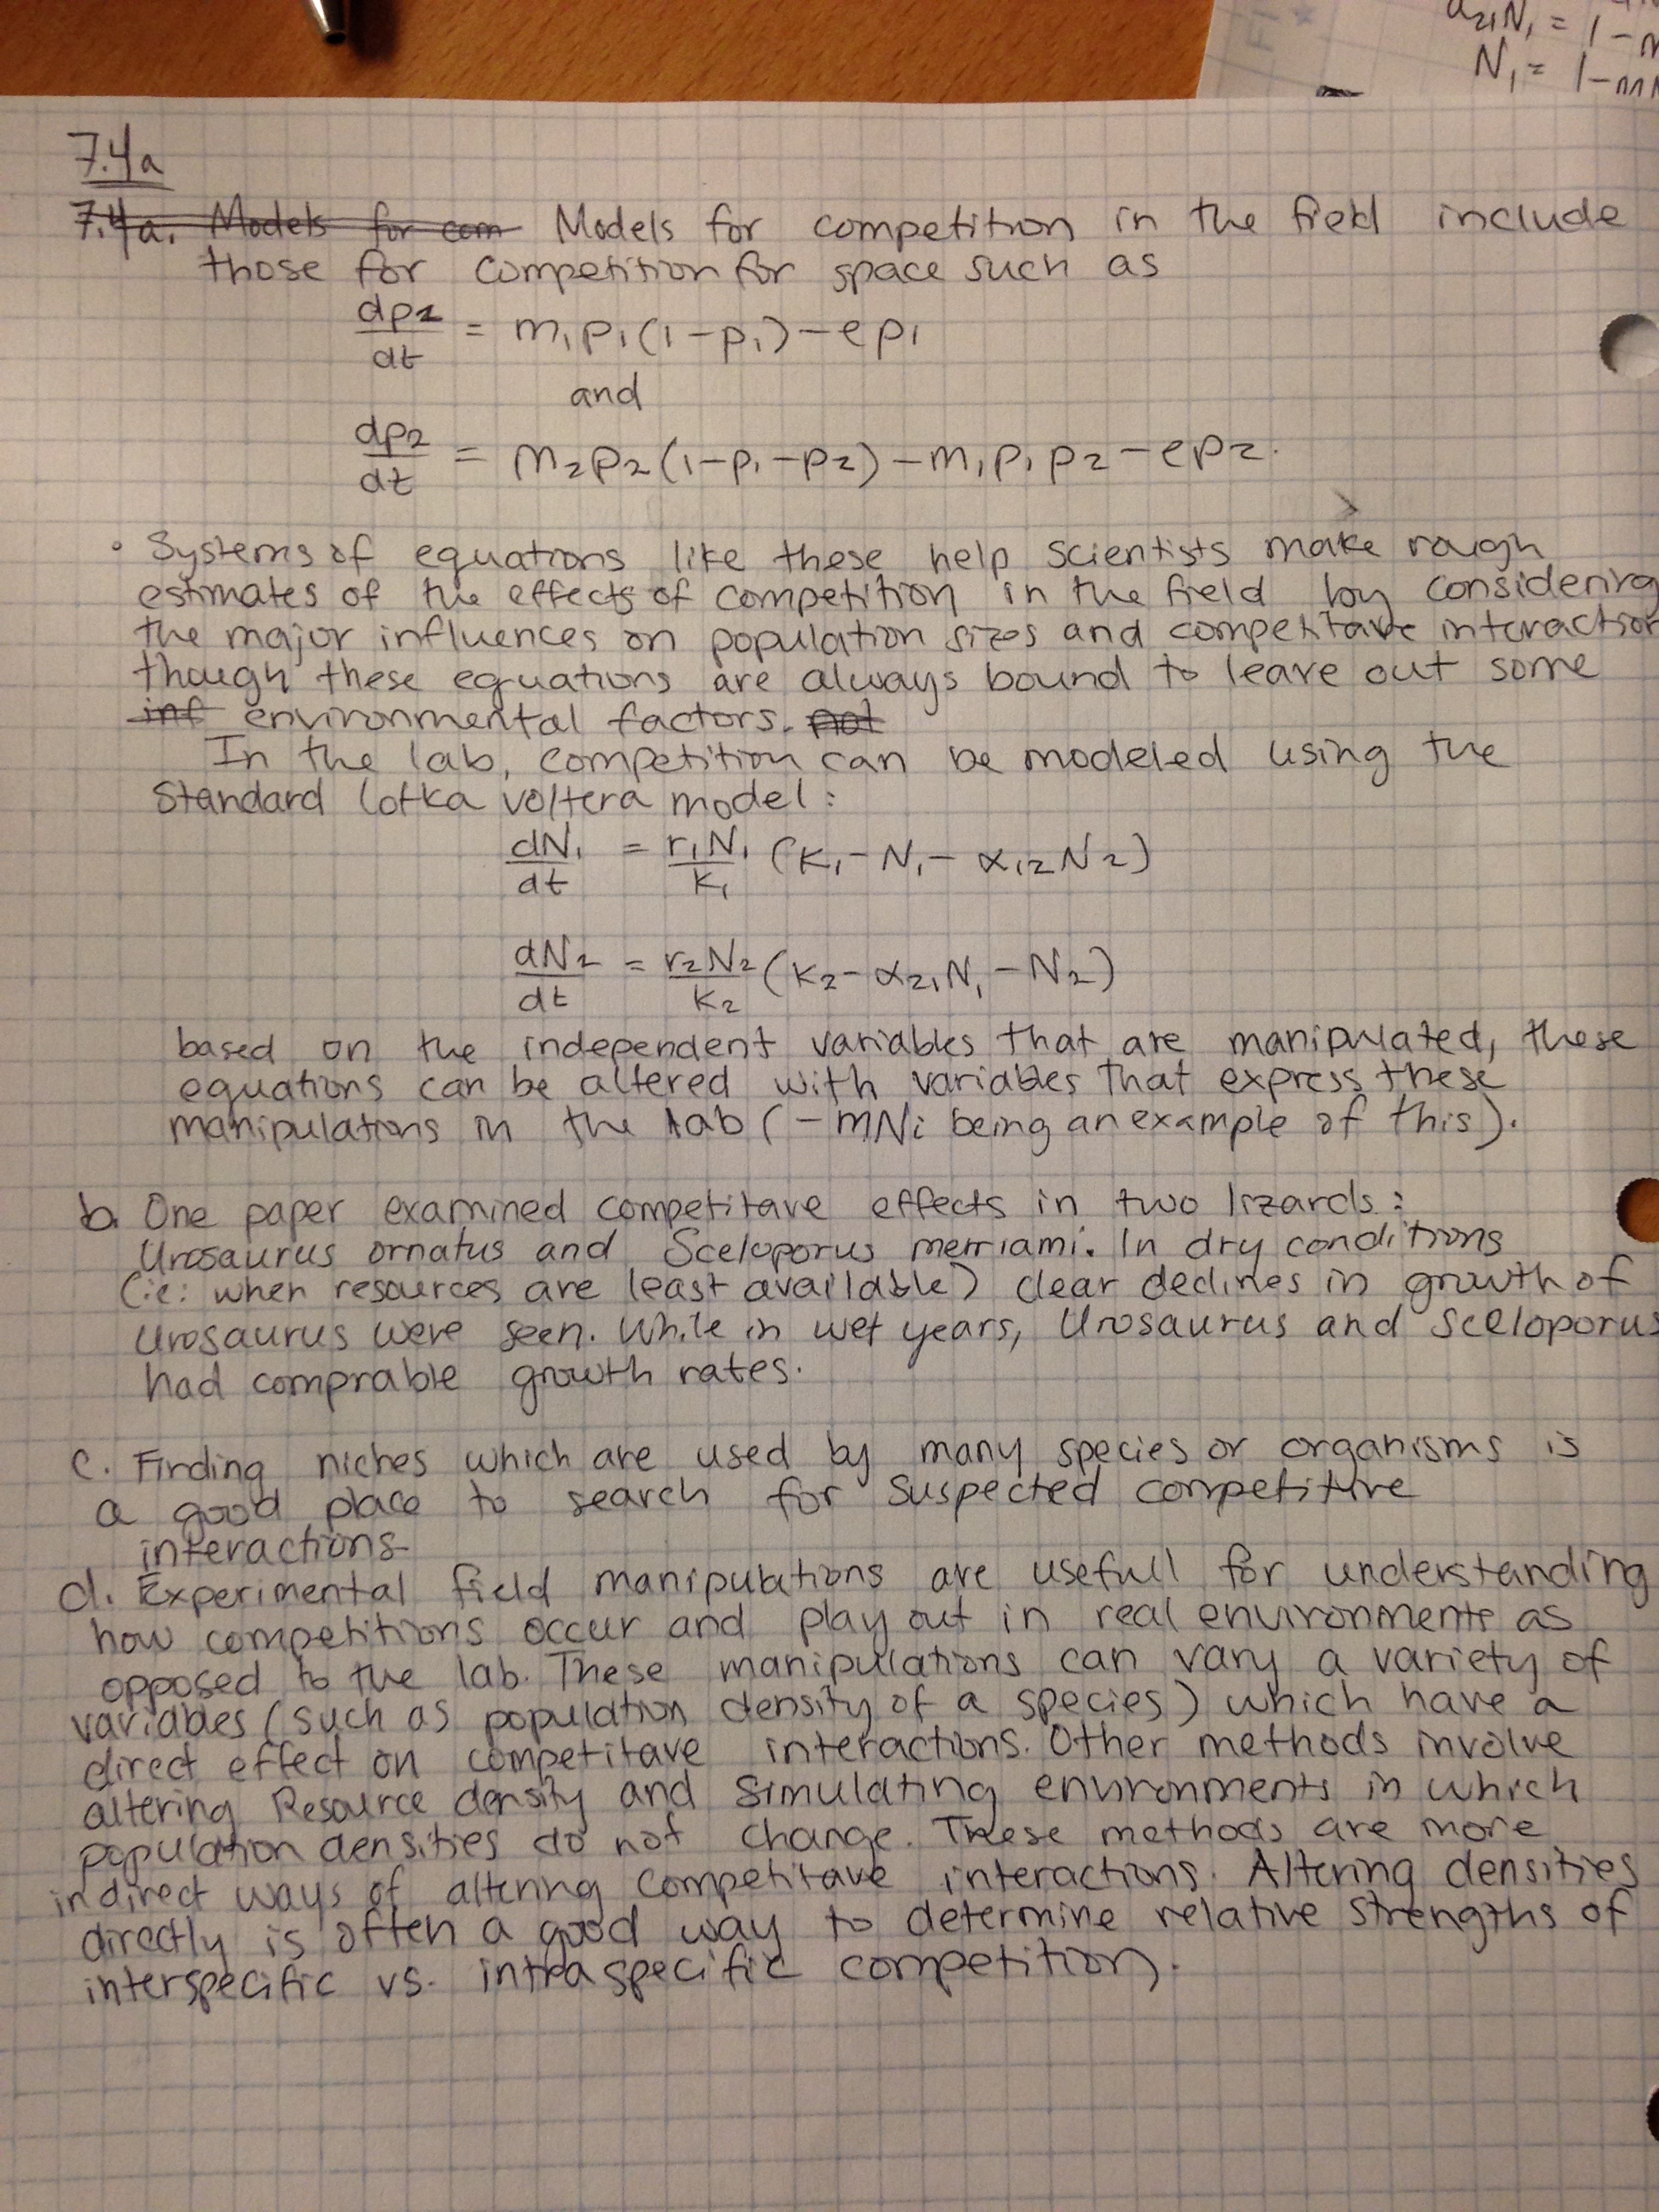 a21N1 = 1-
N1 = 1-m
7.4a
7.4a. Models for com Models for competition in the field include
those for competition for space such as
dp1/dt = m1p1(1-p1)-ep1
and
dp2/dt = m2p2(1-p1-p2)-m1p1p2-ep2.
• Systems of equations like these help scientists make rough
estimates of the effects of competition in the field by considering
the major influences on population sizes and competitave interaction
though these equations are always bound to leave out some
inf environmental factors. not
In the lab, competition can be modeled using the
standard lotka voltera model:
dN1/dt = r1N1/K1 (K1-N1-α12N2)
dN2/dt = r2N2/K2 (K2-α21N1-N2)
based on the independent variables that are manipulated, these
equations can be altered with variables that express these
manipulations in the lab (-mNi being an example of this).
b. One paper examined competitave effects in two lizards:
Urosaurus ornatus and Sceloporus merriami. In dry conditions
(ie: when resources are least available) clear declines in growth of
Urosaurus were seen. While in wet years, Urosaurus and Sceloporus
had comprable growth rates.
c. Finding niches which are used by many species or organisms is
a good place to search for suspected competitive
interactions.
d. Experimental field manipulations are usefull for understanding
how competitions occur and play out in real environments as
opposed to the lab. These manipulations can vary a variety of
variables (such as population density of a species) which have a
direct effect on competitave interactions. Other methods involve
altering Resource density and simulating environments in which
population densities do not change. These methods are more
indirect ways of altering competitave interactions. Altering densities
directly is often a good way to determine relative strengths of
interspecific vs. intraspecific competition.